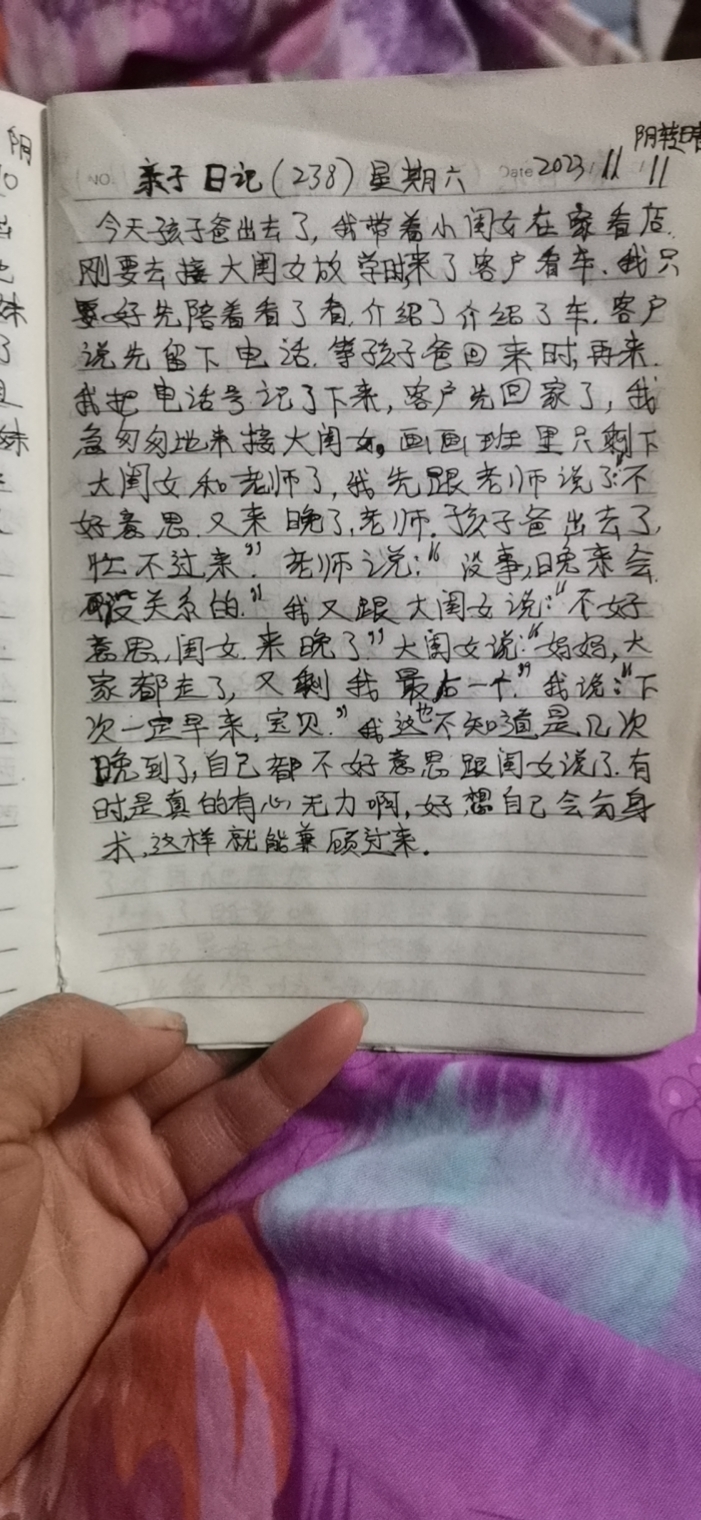 阴转晴
NO. 亲子日记(238)星期六 Date 2023 11 11
今天孩子爸出去了,我带着小闺女在家看店.
刚要去接大闺女放学时,来了客户看车.我只
要好先陪着看了看,介绍了介绍了车.客户
说先留下电话.等孩子爸回来时,再来.
我把电话号记了下来,客户先回家了,我
急匆匆地来接大闺女。画画班里只剩下
大闺女和老师了,我先跟老师说了:“不
好意思.又来晚了,老师.孩子爸出去了,
忙不过来”.老师说:“没事,晚来会
没关系的.”我又跟大闺女说:“不好
意思,闺女.来晚了.”大闺女说:“妈妈,大
家都走了,又剩我最后一个.”我说:“下
次一定早来,宝贝.”我这也不知道是几次
晚到了,自己都不好意思跟闺女说了.有
时是真的有心无力啊,好想自己会分身
术,这样就能兼顾过来.
阴
妹
了
妹